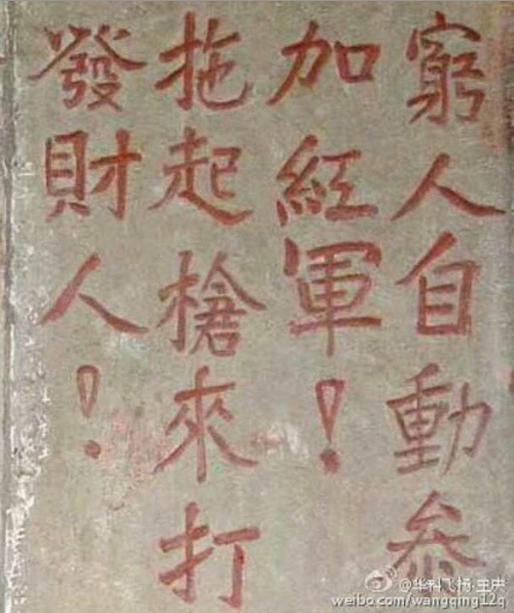 窮人自動叅
加紅軍！
拖起槍來打
發財人！
@华科飞扬-王中
weibo.com/wangqing12q